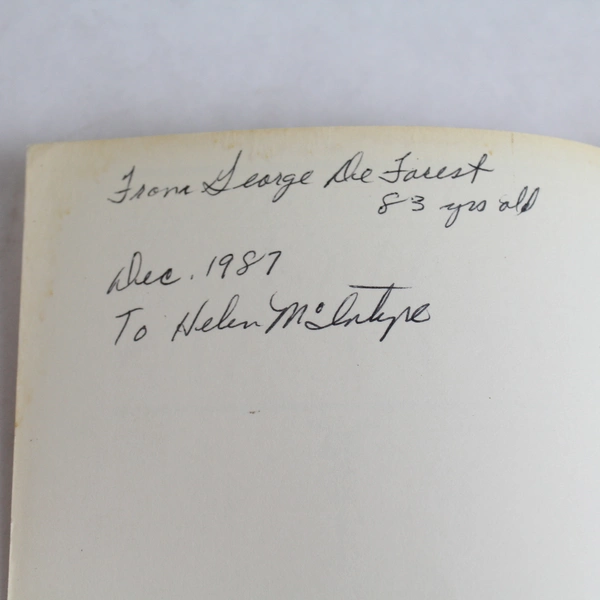 From George De Forest
83 yrs old
Dec. 1987
To Helen McIntyre